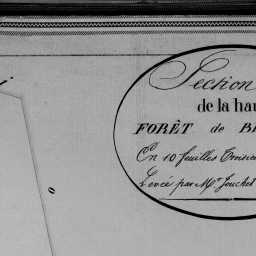 Section
de la hau
FORÊT de B
En 10 feuilles Troisièm
Levée par Mr. Jouchet